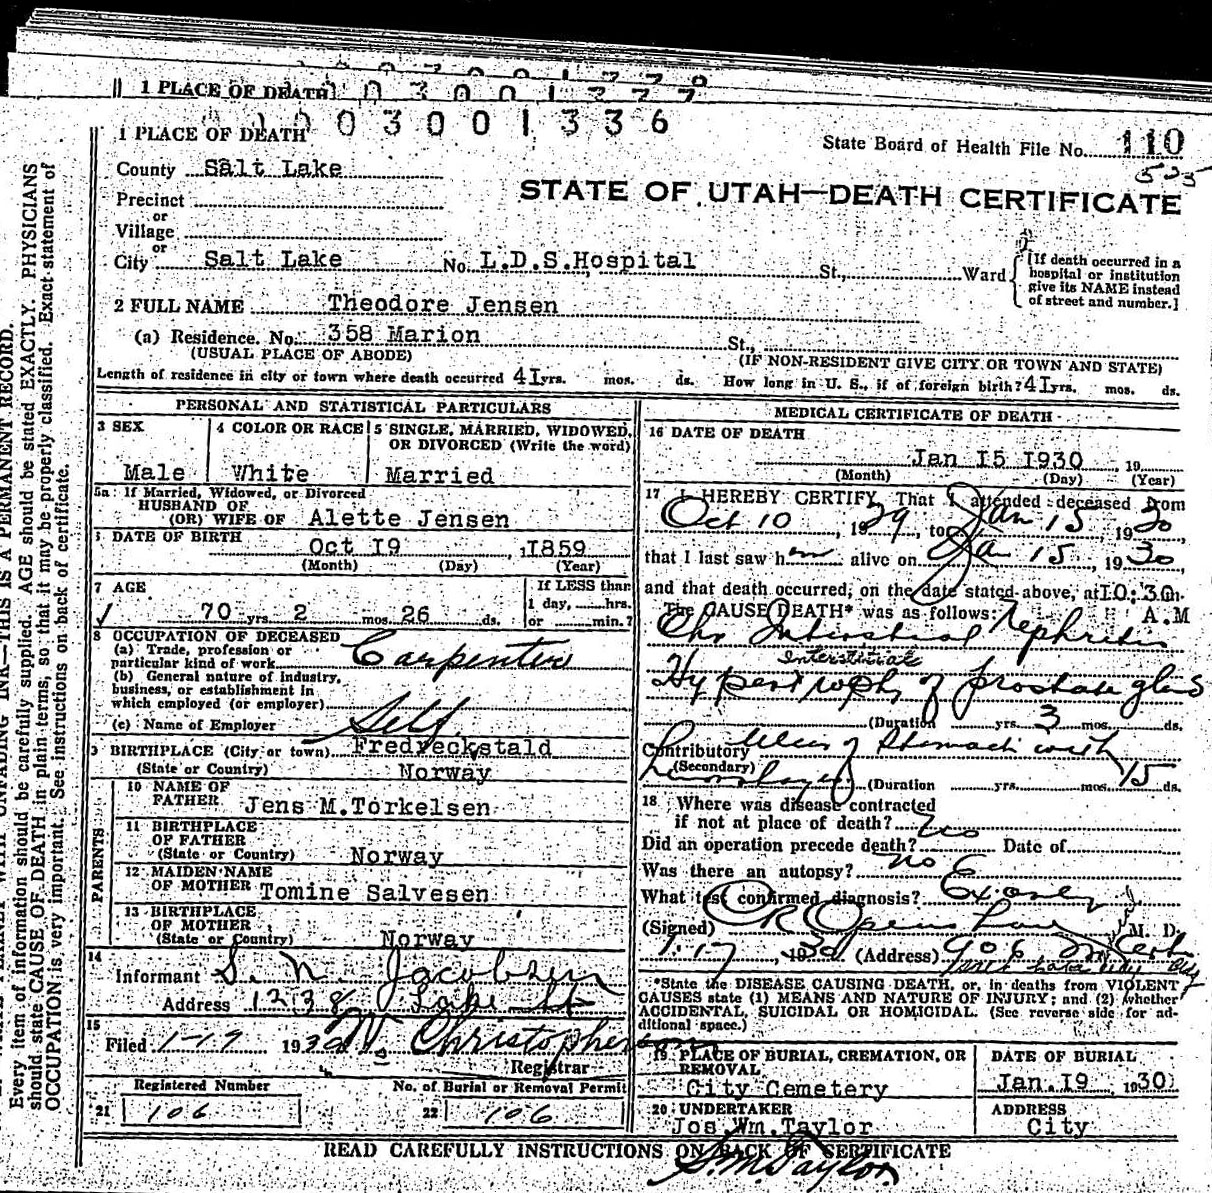 1 PLACE OF DEATH
1 PLACE OF DEATH
003001336
State Board of Health File No. 110
525
County Salt Lake
STATE OF UTAH—DEATH CERTIFICATE
Precinct
or
Village
or
City Salt Lake No. L.D.S.Hospital St., Ward
[If death occurred in a
hospital or institution
give its NAME instead
of street and number.]
2 FULL NAME Theodore Jensen
(a) Residence. No. 358 Marion St.,
(USUAL PLACE OF ABODE) (IF NON-RESIDENT GIVE CITY OR TOWN AND STATE)
Length of residence in city or town where death occurred 41 yrs. mos. ds. How long in U. S., if of foreign birth? 41 yrs. mos. ds.
PERSONAL AND STATISTICAL PARTICULARS
3 SEX 4 COLOR OR RACE 5 SINGLE, MARRIED, WIDOWED,
OR DIVORCED (Write the word)
Male White Married
5a If Married, Widowed, or Divorced
HUSBAND OF
(OR) WIFE OF Alette Jensen
DATE OF BIRTH
Oct 19 , 1859
(Month) (Day) (Year)
7 AGE If LESS than
1 day, hrs.
70 yrs. 2 mos. 26 ds. or min.?
8 OCCUPATION OF DECEASED
(a) Trade, profession or
particular kind of work Carpenter
(b) General nature of industry,
business, or establishment in
which employed (or employer)
(c) Name of Employer Self
9 BIRTHPLACE (City or town) Fredreckstald
(State or Country) Norway
PARENTS
10 NAME OF
FATHER Jens M.Torkelsen
11 BIRTHPLACE
OF FATHER
(State or Country) Norway
12 MAIDEN NAME
OF MOTHER Tomine Salvesen
13 BIRTHPLACE
OF MOTHER
(State or Country) Norway
14
Informant S. N. Jacobsen
Address 1238 Lake St
15
Filed 1-17 1930 M. Christopherson
Registrar
Registered Number No. of Burial or Removal Permit
21 106 22 106
MEDICAL CERTIFICATE OF DEATH
16 DATE OF DEATH
Jan 15 1930 , 19
(Month) (Day) (Year)
17 I HEREBY CERTIFY, That I attended deceased from
Oct 10 , 1929, to Jan 15 , 1930
that I last saw him alive on Jan 15 , 1930
and that death occurred, on the date stated above, at 10:30m.
The CAUSE DEATH* was as follows: A.M
Chr Interstitial Nephritis
Interstitiale
Hypertrophy of prostate gland
(Duration yrs. 3 mos. ds.
Contributory Ulcer of Stomach with
(Secondary) (Duration yrs. mos. 15 ds.
18 Where was disease contracted
if not at place of death?
Did an operation precede death? no Date of
Was there an autopsy? no
What test confirmed diagnosis?
(Signed) M. D.
1-17, 1930 (Address) 906
Salt Lake City
*State the DISEASE CAUSING DEATH, or, in deaths from VIOLENT
CAUSES state (1) MEANS AND NATURE OF INJURY; and (2) whether
ACCIDENTAL, SUICIDAL OR HOMICIDAL. (See reverse side for ad-
ditional space.)
19 PLACE OF BURIAL, CREMATION, OR
REMOVAL
City Cemetery
DATE OF BURIAL
Jan.19 , 1930
20 UNDERTAKER
Jos.Wm.Taylor
ADDRESS
City
READ CAREFULLY INSTRUCTIONS ON BACK OF CERTIFICATE
S.M.Taylor
WRITE PLAINLY WITH UNFADING INK—THIS IS A PERMANENT RECORD.
Every item of information should be carefully supplied. AGE should be stated EXACTLY. PHYSICIANS
should state CAUSE OF DEATH in plain terms, so that it may be properly classified. Exact statement of
OCCUPATION is very important. See instructions on back of certificate.